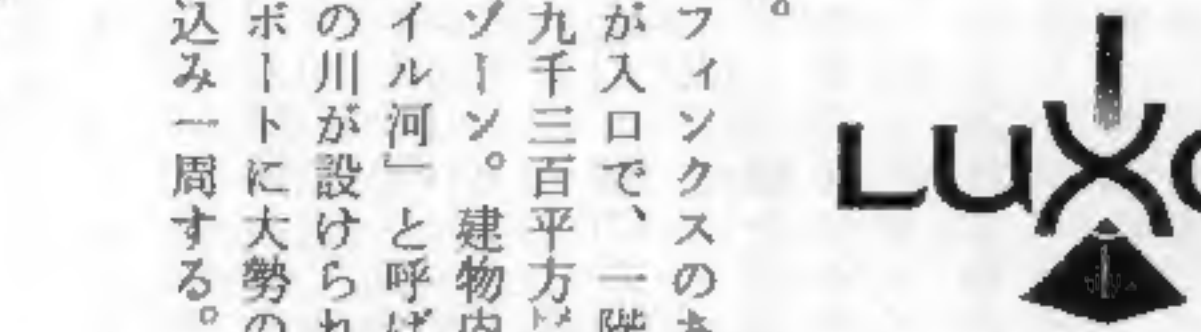 フィンクスのあ
が入口で、一階
九千三百平方㍍
ゾーン。建物内
イル河」と呼ば
の川が設けられ
ボートに大勢の
込み一周する。
LUX